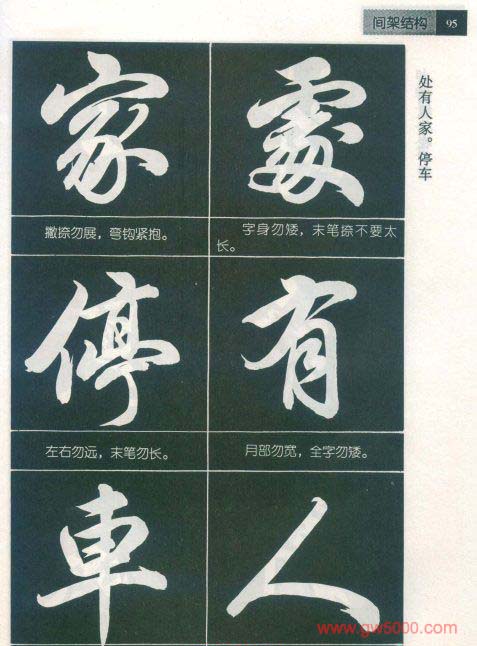 间架结构 95
处有人家。停车
處
字身勿矮，末笔捺不要太
长。
有
月部勿宽，全字勿矮。
人
家
撇捺勿展，弯钩紧抱。
停
左右勿远，末笔勿长。
車
www.gw5000.com